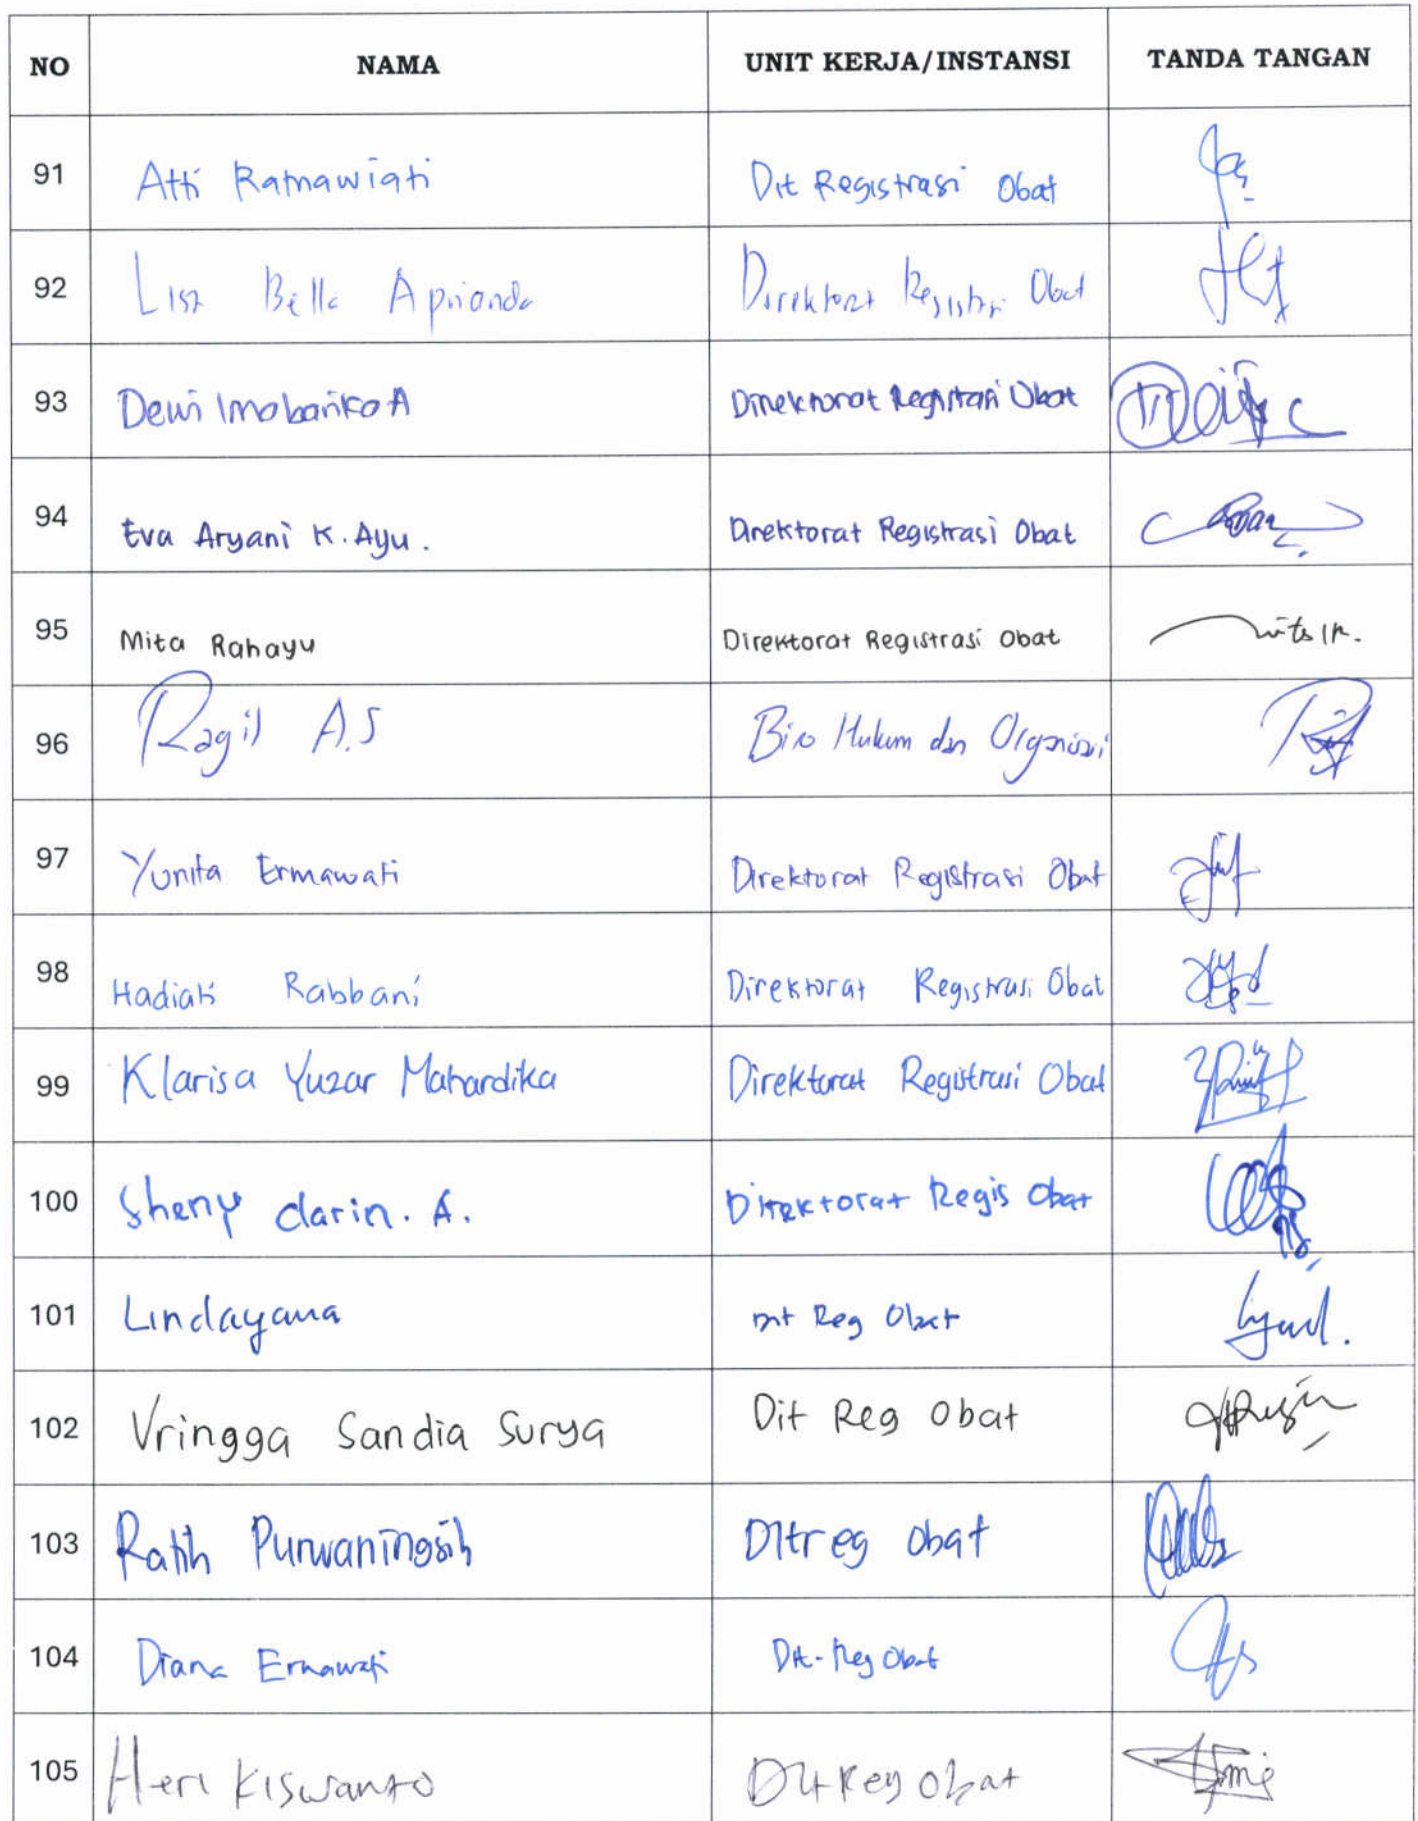 NO NAMA UNIT KERJA/INSTANSI TANDA TANGAN
91 Atti Ratnawiati Dit Registrasi Obat
92 Lisa Bella Aprianda Direktorat Registrasi Obat
93 Dewi Imobariko A Direktorat Registrasi Obat
94 Eva Aryani K. Ayu. Direktorat Registrasi Obat
95 Mita Rahayu Direktorat Registrasi Obat
96 Ragil A.S Biro Hukum dan Organisasi
97 Yunita Ermawati Direktorat Registrasi Obat
98 Hadiati Rabbani Direktorat Registrasi Obat
99 Klarisa Yuzar Mahardika Direktorat Registrasi Obat
100 Sheny darin. A. Direktorat Regis Obat
101 Lindayana Dit Reg Obat
102 Vringga Sandia Surya Dit Reg Obat
103 Ratih Purwaningsih Ditreg Obat
104 Diana Ernawati Dit-Reg Obat
105 Heri Kiswanto Dit Reg Obat